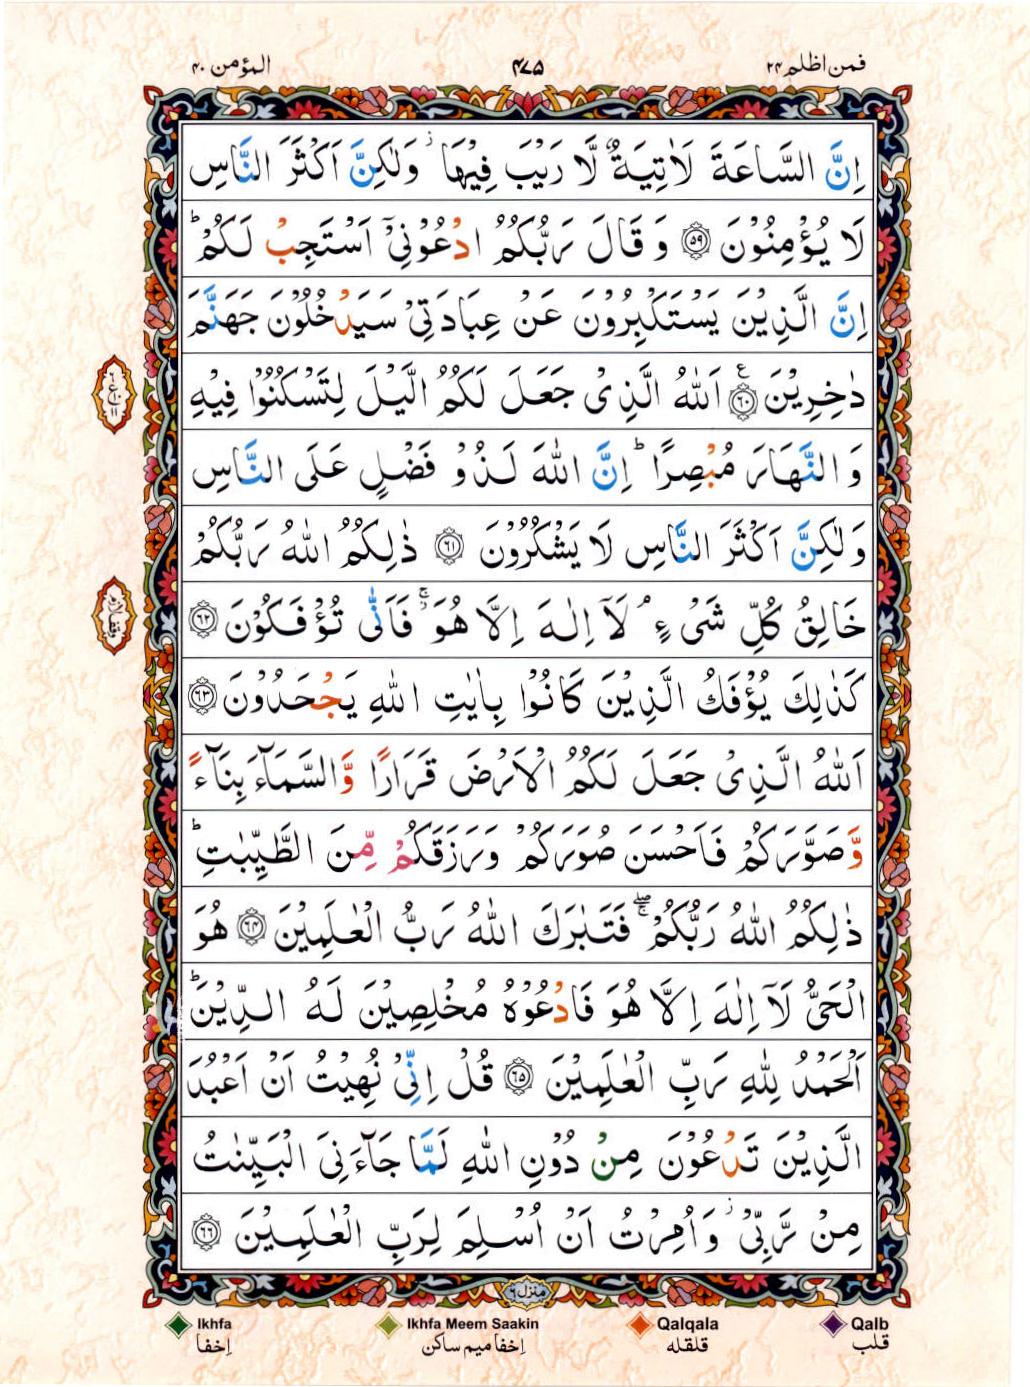 فمن اظلم ۲۴
۴۷۵
المؤمن ۴۰
اِنَّ السَّاعَةَ لَاٰتِيَةٌ لَّا رَيْبَ فِيْهَا ؗ وَلٰكِنَّ اَكْثَرَ النَّاسِ
لَا يُؤْمِنُوْنَ ﴿۵۹﴾ وَ قَالَ رَبُّكُمُ ادْعُوْنِيْۤ اَسْتَجِبْ لَكُمْ ؕ
اِنَّ الَّذِيْنَ يَسْتَكْبِرُوْنَ عَنْ عِبَادَتِيْ سَيَدْخُلُوْنَ جَهَنَّمَ
دٰخِرِيْنَ ﴿۶۰﴾ ع اَللّٰهُ الَّذِيْ جَعَلَ لَكُمُ الَّيْلَ لِتَسْكُنُوْا فِيْهِ
وَ النَّهَارَ مُبْصِرًا ؕ اِنَّ اللّٰهَ لَذُوْ فَضْلٍ عَلَى النَّاسِ
وَلٰكِنَّ اَكْثَرَ النَّاسِ لَا يَشْكُرُوْنَ ﴿۶۱﴾ ذٰلِكُمُ اللّٰهُ رَبُّكُمْ
خَالِقُ كُلِّ شَيْءٍ ۘ لَاۤ اِلٰهَ اِلَّا هُوَ ۚؗ فَاَنّٰى تُؤْفَكُوْنَ ﴿۶۲﴾
كَذٰلِكَ يُؤْفَكُ الَّذِيْنَ كَانُوْا بِاٰيٰتِ اللّٰهِ يَجْحَدُوْنَ ﴿۶۳﴾
اَللّٰهُ الَّذِيْ جَعَلَ لَكُمُ الْاَرْضَ قَرَارًا وَّالسَّمَآءَ بِنَآءً
وَّصَوَّرَكُمْ فَاَحْسَنَ صُوَرَكُمْ وَرَزَقَكُمْ مِّنَ الطَّيِّبٰتِ ؕ
ذٰلِكُمُ اللّٰهُ رَبُّكُمْ ۖۚ فَتَبٰرَكَ اللّٰهُ رَبُّ الْعٰلَمِيْنَ ﴿۶۴﴾ هُوَ
الْحَيُّ لَاۤ اِلٰهَ اِلَّا هُوَ فَادْعُوْهُ مُخْلِصِيْنَ لَهُ الدِّيْنَ ؕ
اَلْحَمْدُ لِلّٰهِ رَبِّ الْعٰلَمِيْنَ ﴿۶۵﴾ قُلْ اِنِّيْ نُهِيْتُ اَنْ اَعْبُدَ
الَّذِيْنَ تَدْعُوْنَ مِنْ دُوْنِ اللّٰهِ لَمَّا جَآءَنِيَ الْبَيِّنٰتُ
مِنْ رَّبِّيْ ؗ وَاُمِرْتُ اَنْ اُسْلِمَ لِرَبِّ الْعٰلَمِيْنَ ﴿۶۶﴾
منزل ۶
Ikhfa
اِخفا
Ikhfa Meem Saakin
اِخفا میم ساکن
Qalqala
قلقله
Qalb
قلب